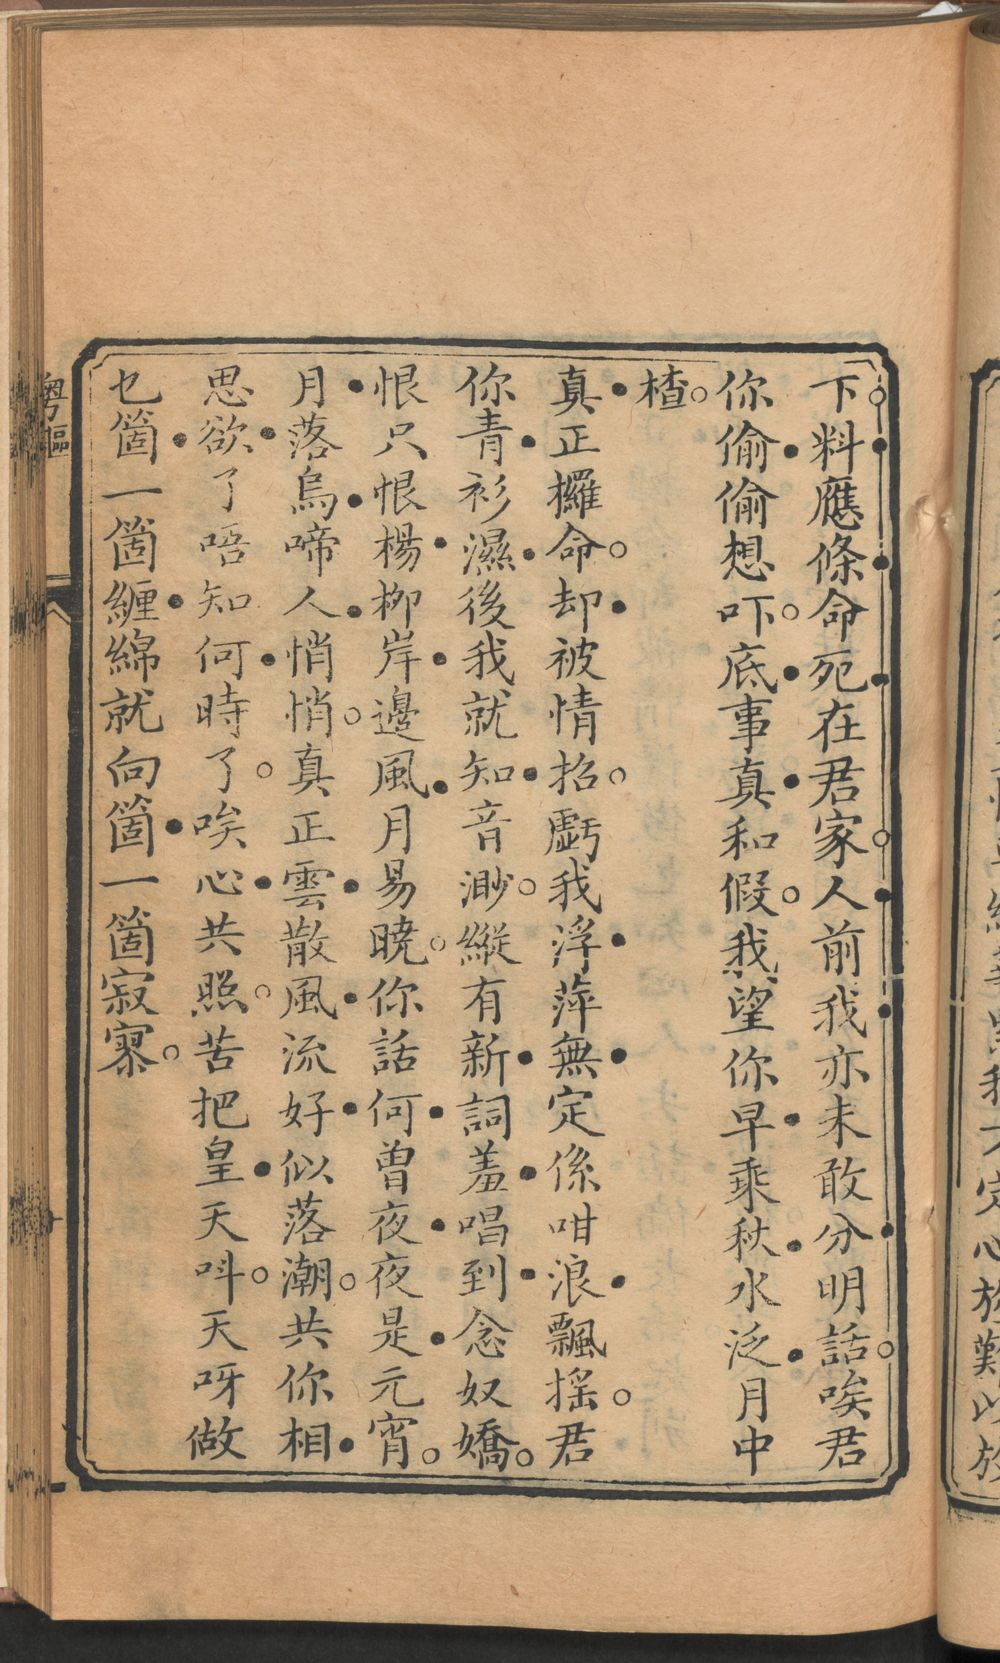 下料應條命死在君家人前我亦未敢分明話唉君
你偷偷想吓底事真和假我望你早乘秋水泛月中
楂
真正攞命却被情招虧我浮萍無定係咁浪飄摇君
你青衫濕後我就知音渺縱有新詞羞唱到念奴嬌
恨只恨楊柳岸邊風月易曉你話何曾夜夜是元宵
月落烏啼人悄悄真正雲散風流好似落潮共你相
思欲了唔知何時了唉心共照苦把皇天呌天呀做
乜箇一箇纏綿就向箇一箇寂寥
粵謳